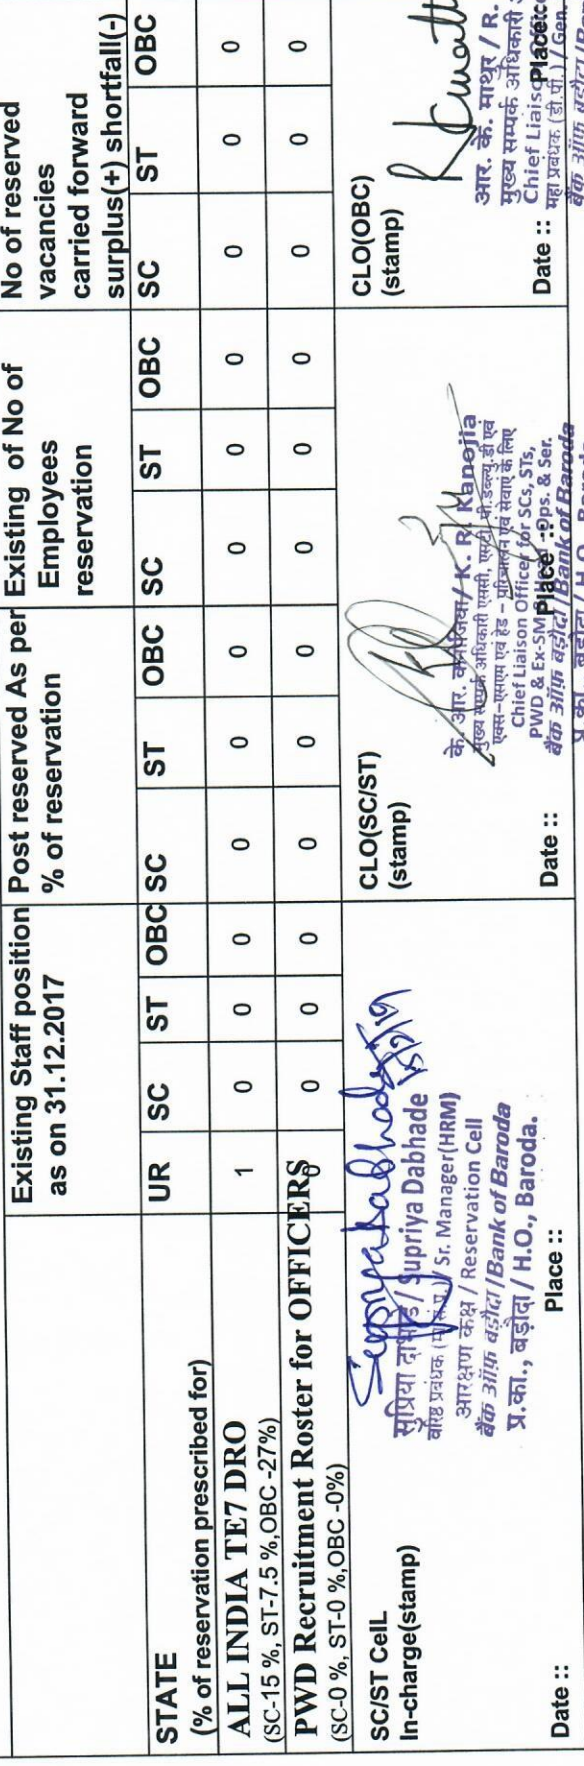 Existing Staff position as on 31.12.2017
Post reserved As per % of reservation
Existing of No of Employees reservation
No of reserved vacancies carried forward surplus(+) shortfall(-)
STATE
(% of reservation prescribed for)
UR SC ST OBC SC ST OBC SC ST OBC SC ST OBC
ALL INDIA TE7 DRO
(SC-15 %, ST-7.5 %,OBC -27%)
1 0 0 0 0 0 0 0 0 0 0 0 0
PWD Recruitment Roster for OFFICERS
(SC-0 %, ST-0 %,OBC -0%)
0 0 0 0 0 0 0 0 0 0 0 0 0
SC/ST CelL
In-charge(stamp)
सुप्रिया दाभाडे / Supriya Dabhade
वरिष्ठ प्रबंधक / Sr. Manager(HRM)
आरक्षण कक्ष / Reservation Cell
बैंक ऑफ़ बड़ौदा / Bank of Baroda
प्र.का., बड़ौदा / H.O., Baroda.
Date :: Place ::
CLO(SC/ST)
(stamp)
के. आर. / K. R. Kanojia
मुख्य सम्पर्क अधिकारी एससी, एसटी, पी.डब्ल्यु.डी एवं
एक्स-एसएम एवं हेड - परिचालन एवं सेवाएं के लिए
Chief Liaison Officer for SCs, STs,
PWD & Ex-SM Ops. & Ser.
बैंक ऑफ़ बड़ौदा / Bank of Baroda
प्र.का., बड़ौदा / H.O., Baroda
Date :: Place ::
CLO(OBC)
(stamp)
आर. के. माथुर / R.
मुख्य सम्पर्क अधिकारी
Chief Liaison
महा प्रबंधक (डी.पी.) / Gen.
बैंक ऑफ़ बड़ौदा
Date :: Place::